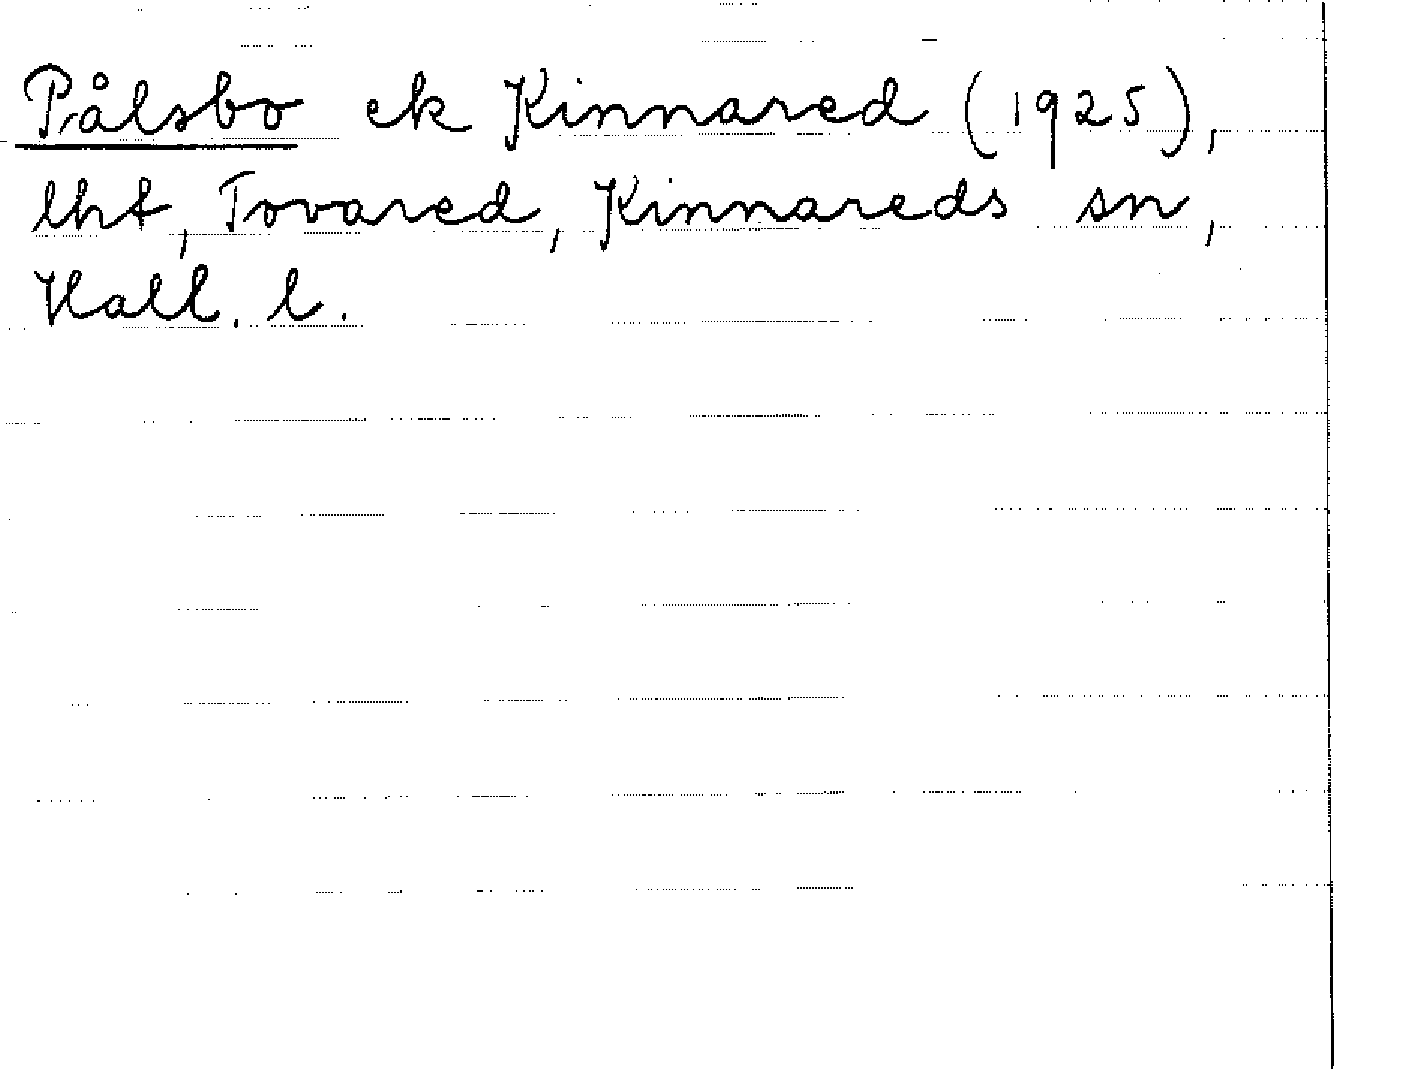 Pålsbo ek Kinnared (1925),
lht, Tovared, Kinnareds sn,
Hall. l.